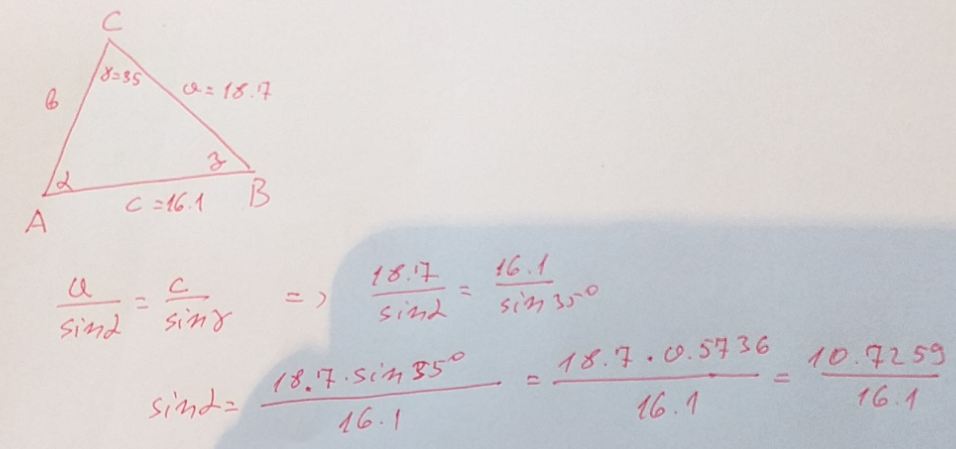 C
γ=35
b
a = 18.7
α
β
A
c = 16.1
B
a/sinα = c/sinγ => 18.7/sinα = 16.1/sin35°
sinα = 18.7·sin35°/16.1 = 18.7·0.5736/16.1 = 10.7259/16.1